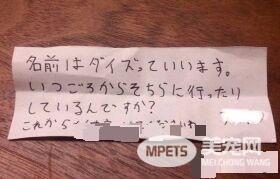 名前はダイズっていいます。
いつごろからそちらに行ったり
しているんですか?
これから
美宠网
MPETS
MEI CHONG WANG